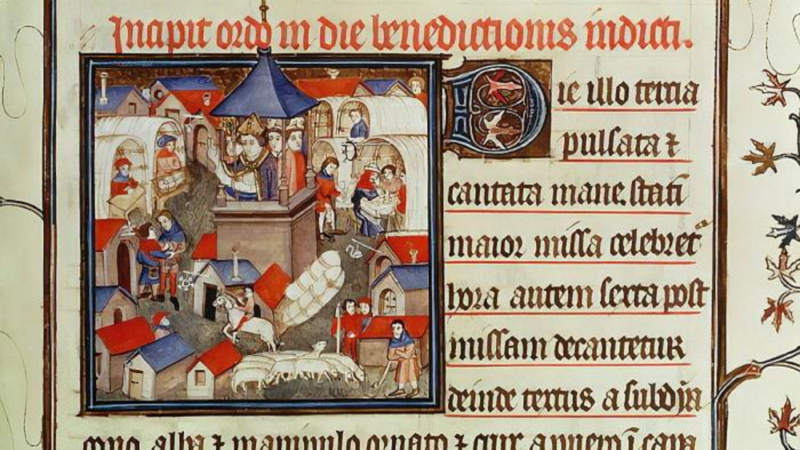 Incipit ordo in die benedictionis indicti.
Die illo tertia
pulsata ⁊
cantata mane. stati
maior missa celebret
hora autem sexta post
missam decantetur
deinde textus a subdya
cono alba ⁊ manipulo ornato ⁊